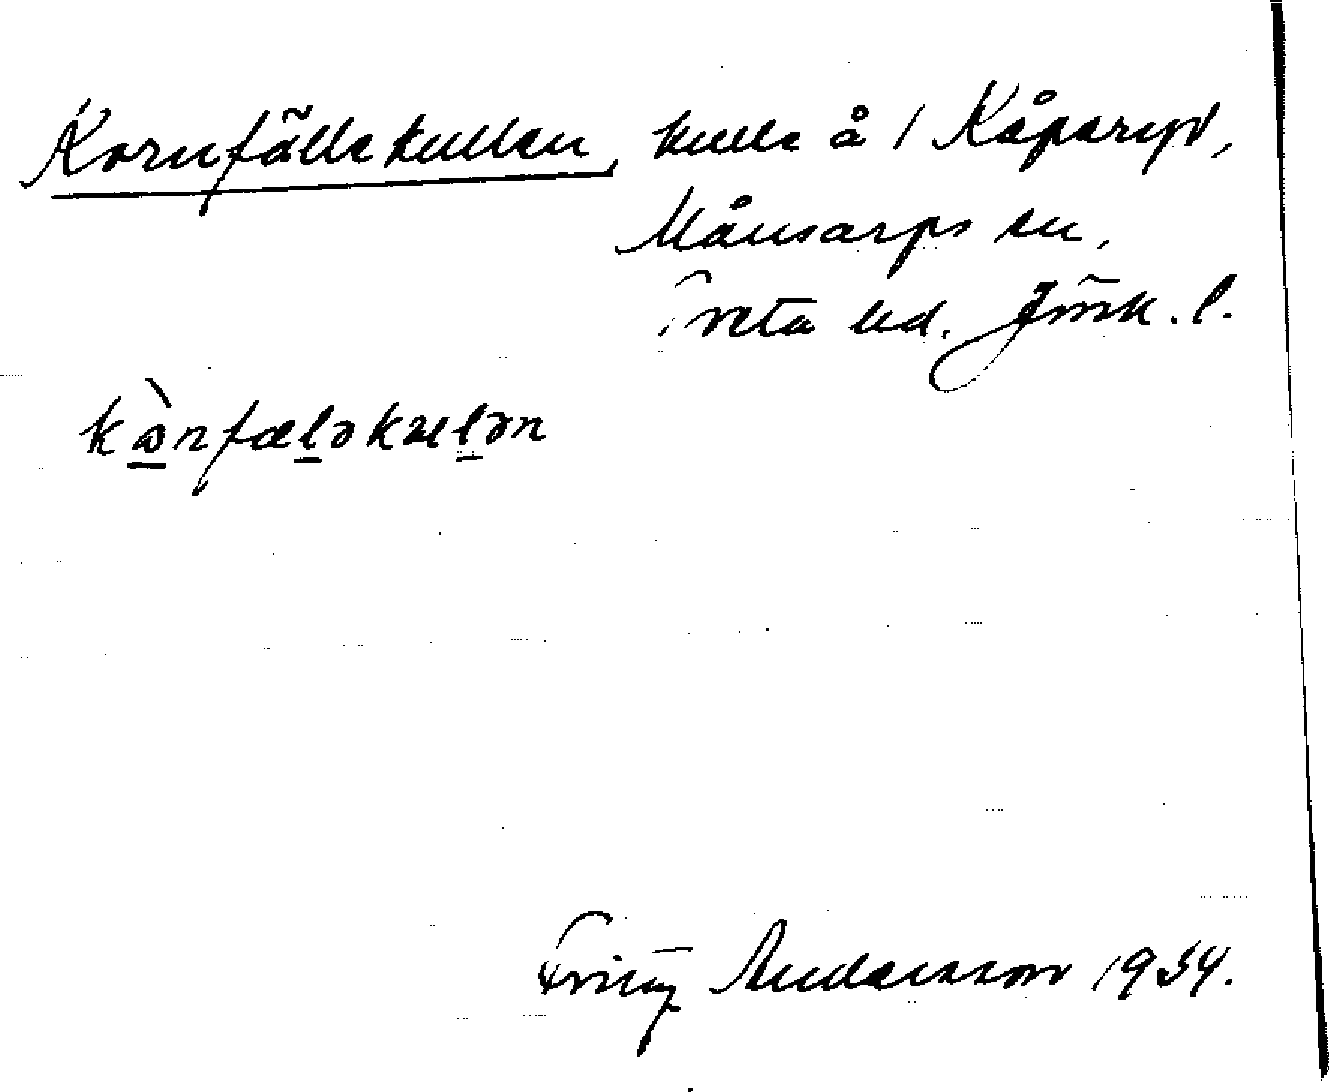 Kornfällekullen, kulle å / Kåparyd,
Månsarps sn,
Tveta hd. Jönk. l.
kò̱nfæl̲əkul̲ən
Fritz Andersson 1934.